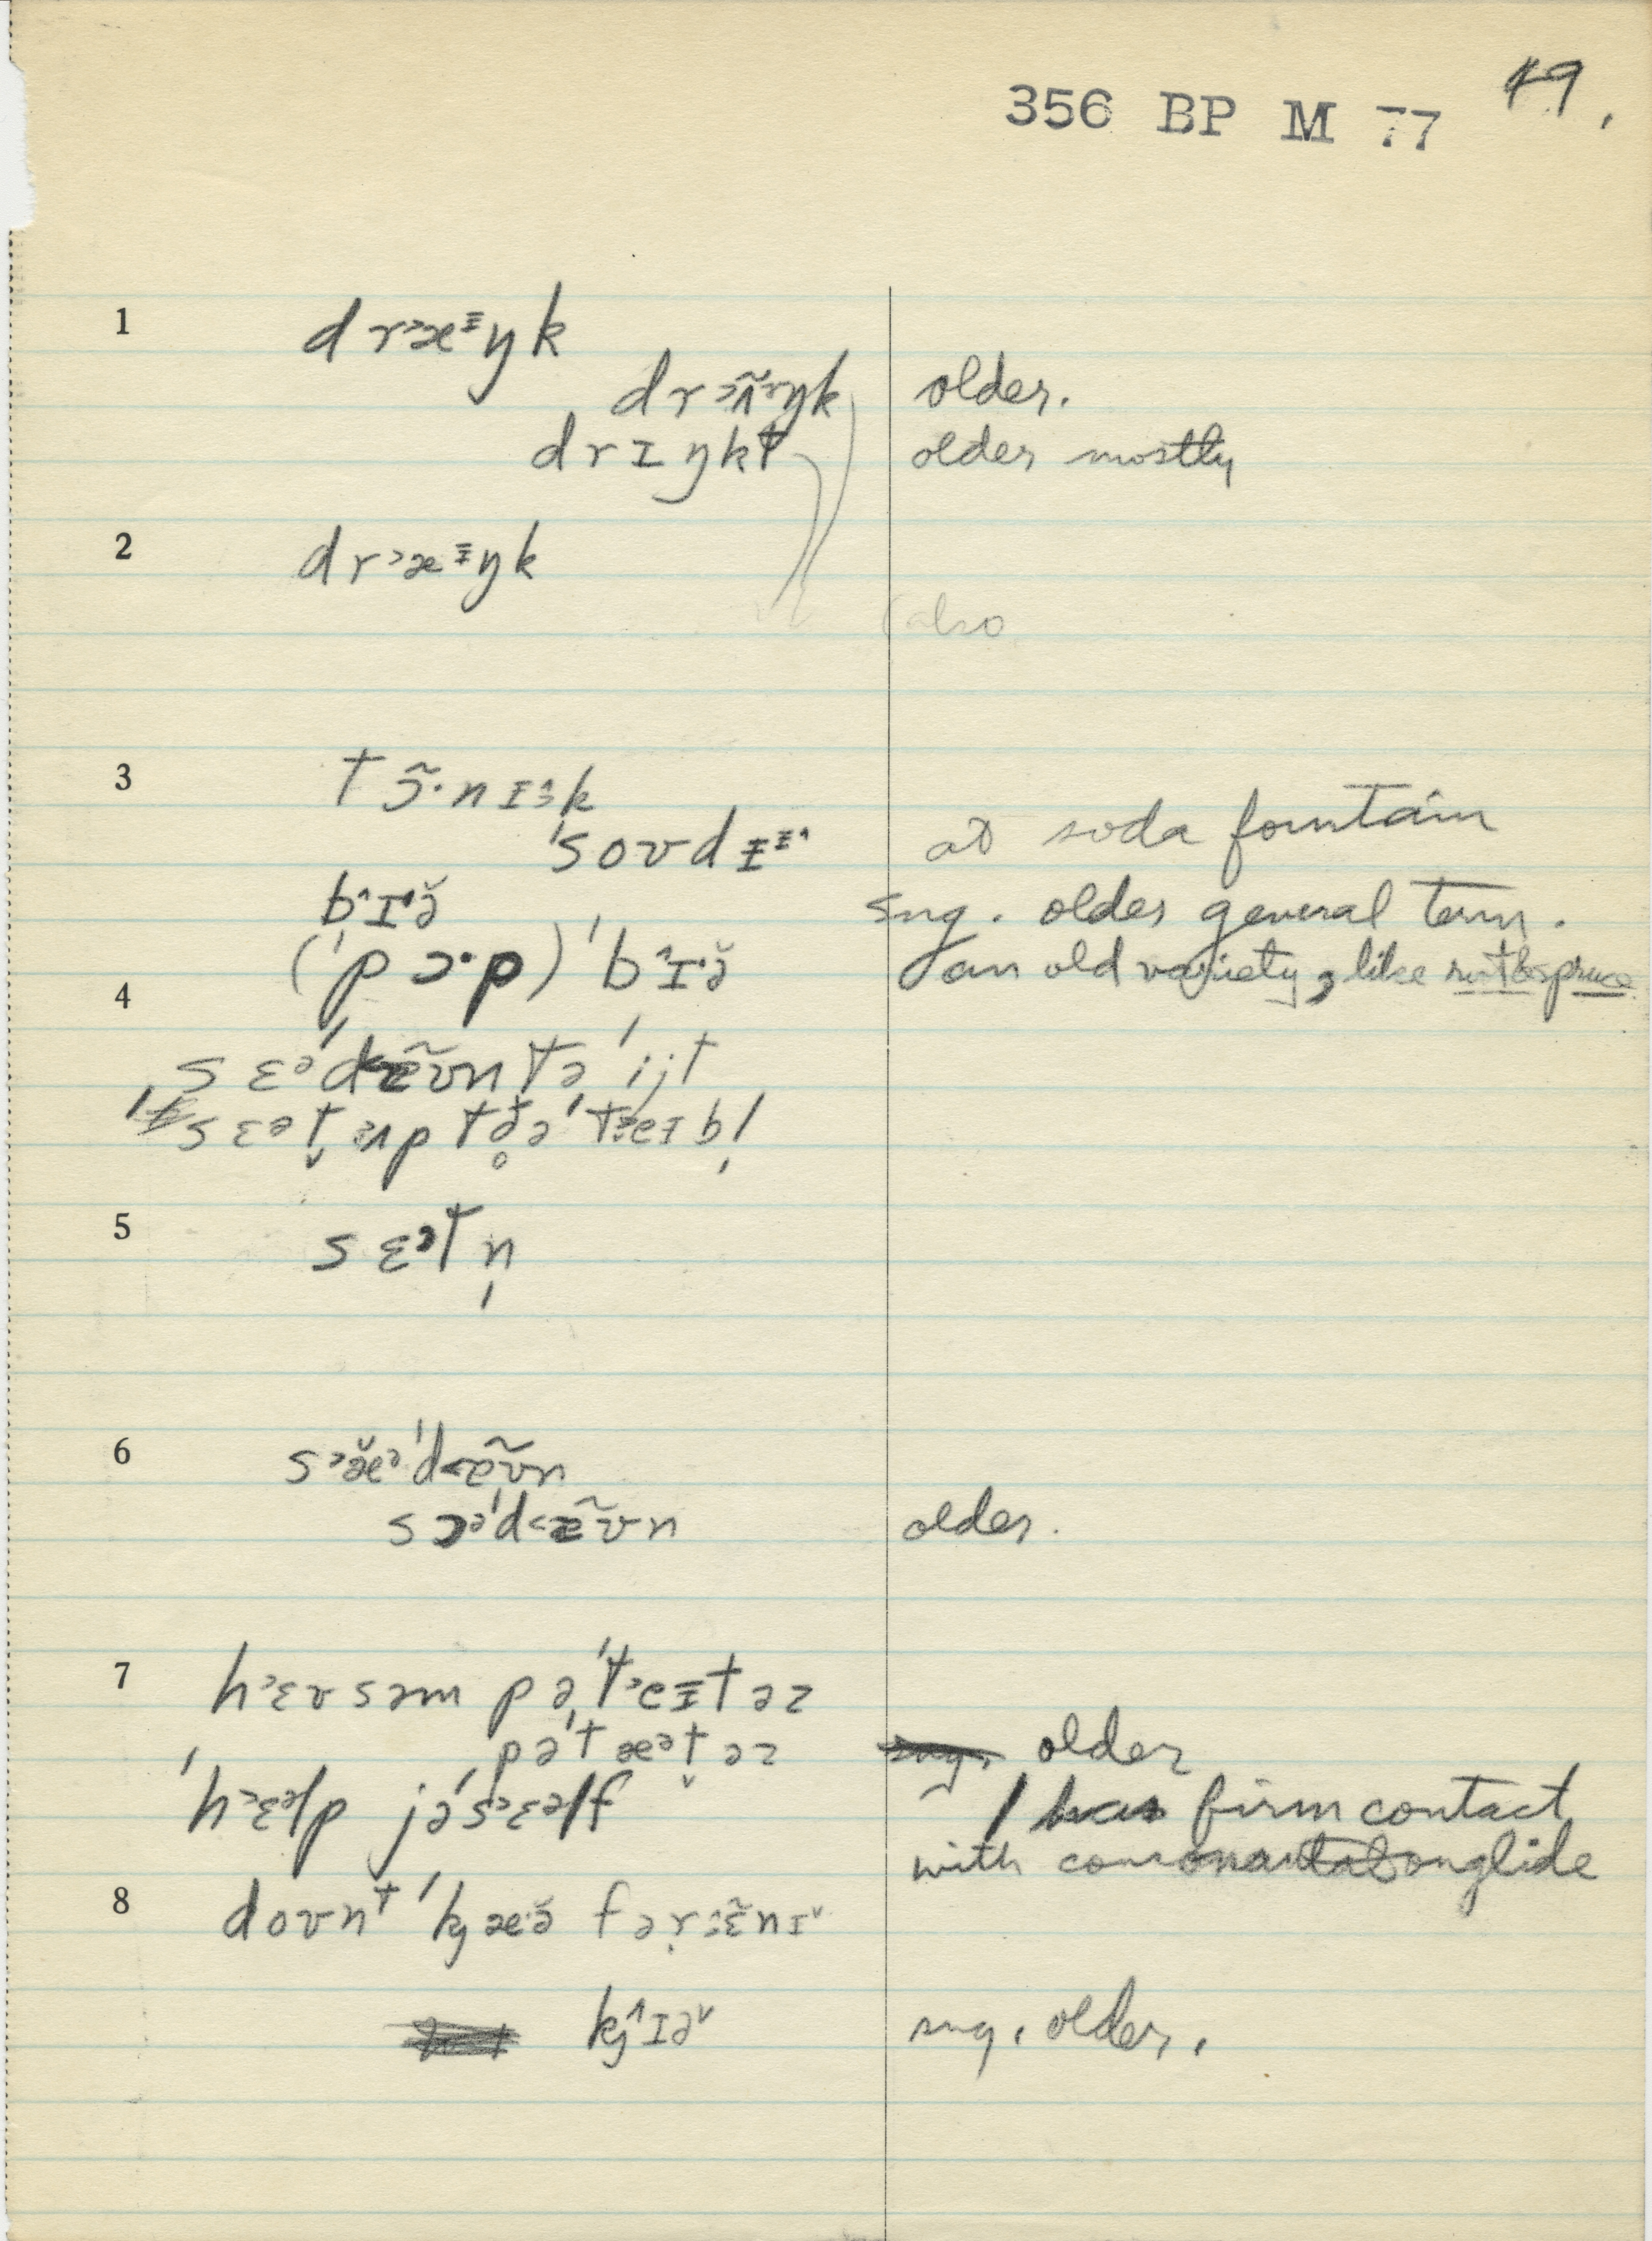 356 BP M 77 49.
1 dr˃æᵻŋk
dr˃ʌ̃ɤŋk older.
drɪŋkt older mostly
2 dr˃æᵻŋk
(also
3 tɔ̃·nɪ˃k
ˈsoʊdᵻᵻ˄ at soda fountain
b˄ɪ·ə̆ sug. older general term.
4 (ˈpɔ·p) ˈb˄ɪ·ə̆ an old variety, like spruce
sɛᵊˈd˂æ̃ʊn tə ˈijt
sɛət̬ ʌp tə̥ðə ˈt˃eɪbl̩
5 sɛᵊtn̩
6 s˃æ̆ᵊˈd˂æ̃ʊn
sɔᵊˈd˂æ̃ʊn older.
7 h˃ɛʊsəm pəˈt˃eᵻtəz
pəˈtæᵊt̬əz older
ˈh˃ɛᵊlp jəˈs˃ɛᵊlf l has firm contact
with consonantal onglide
8 doʊnᵗ ˈkj æ·ə̆ fər̩ ɛ̃nɪ˅
kj˄ɪə˅ sug. older.